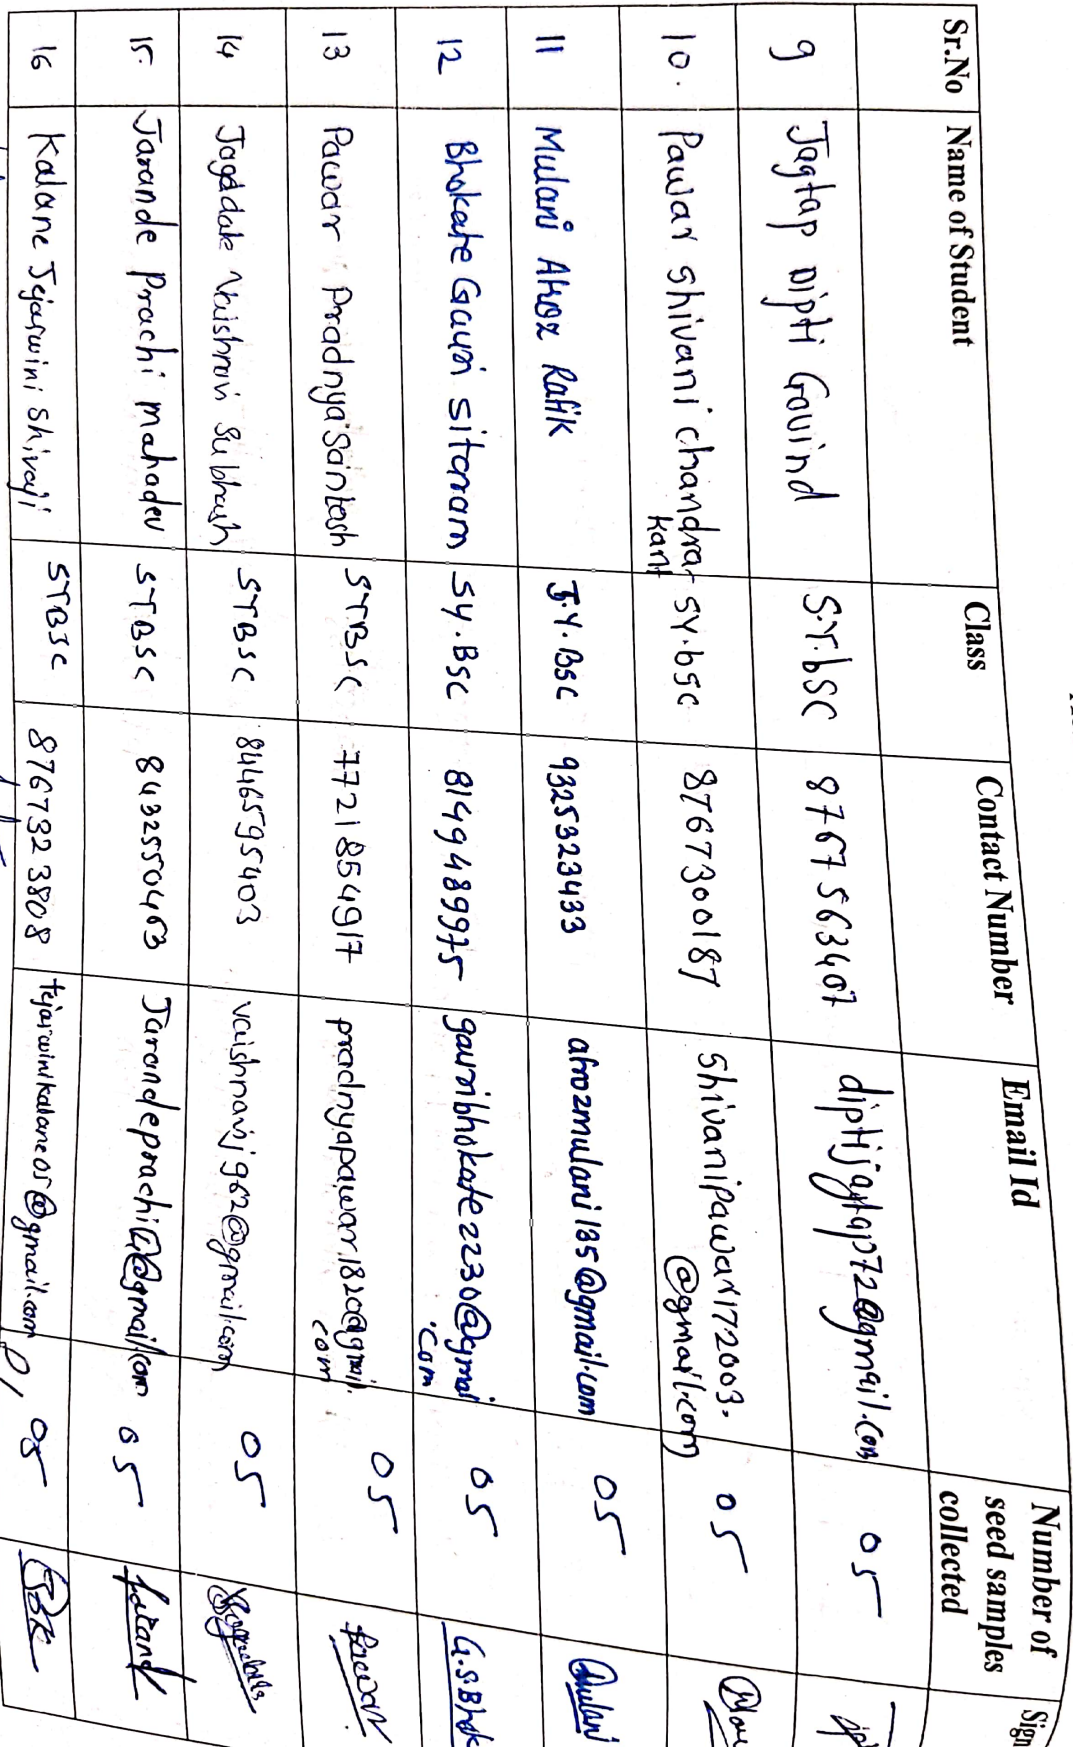 Sr.No Name of Student Class Contact Number Email Id Number of seed samples collected Sign
9 Jagtap Dipti Govind S.Y.bSC 8767563407 diptijagtap72@gmail.com 05
10. Pawar shivani chandra- SY.bsc 8767300187 shivanipawar172003.
kant @gmail.com 05
11 Mulani Afroz Rafik S.Y.Bsc 9325323433 afrozmulani185@gmail.com 05 Mulani
12 Bhokate Gauri sitaram SY.Bsc 8149489975 gauribhokate2230@gmai
.com 05 G.S.Bhok
13 Pawar Pradnya Santosh SYBSC 7721854917 pradnyapawar1820@gmail.
com 05 Pawar
14 Jagdale Vaishnavi Subhash SYBSC 8446595403 vaishnavij962@gmail.com 05
15. Jarande Prachi mahadev SYBSC 8432550463 05 Jarand
16 Kalane Tejaswini Shivaji SYBSC 8767323808 tejaswinikalane05@gmail.com 05